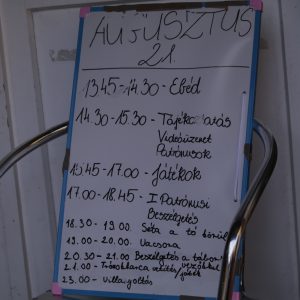 AUGUSZTUS
21.
13.45 - 14.30 - Ebéd
14.30 - 15.30 - Tájékoztatás
Videóüzenet
Patrónusok
15.45 - 17.00 - Játékok
17.00 - 18.45 - I Patrónusi
Beszélgetés
18.30 - 19.00. Séta a tó körül
19.00 - 20.00. Vacsora
20.30 - 21.00 Beszélgetés a tábor
vezetőkkel
21.00 - Trónokharca vetítés / játék
23.00 - Villanyoltás